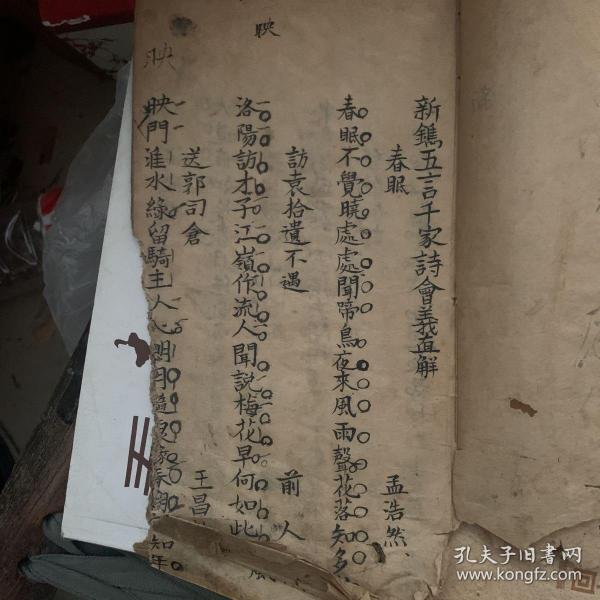 新鐫五言千家詩會義直解
春眠 孟浩然
春眠不覺曉處處聞啼鳥夜來風雨聲花落知多
訪袁拾遺不遇 前人
洛陽訪才子江嶺作流人聞說梅花早何如此 風
送郭司倉 王昌
映門淮水綠留騎主人心明月隨良 春潮 知年
映
映
孔夫子旧书网
www.kongfz.com